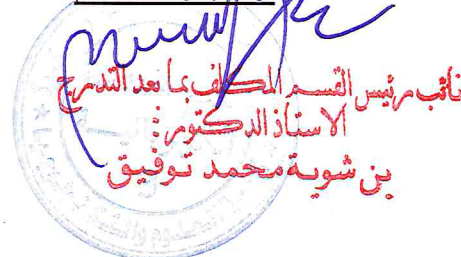 نائب رئيس القسم المكلف بما بعد التدرج
الاستاذ الدكتور :
بن شوية محمد توفيق